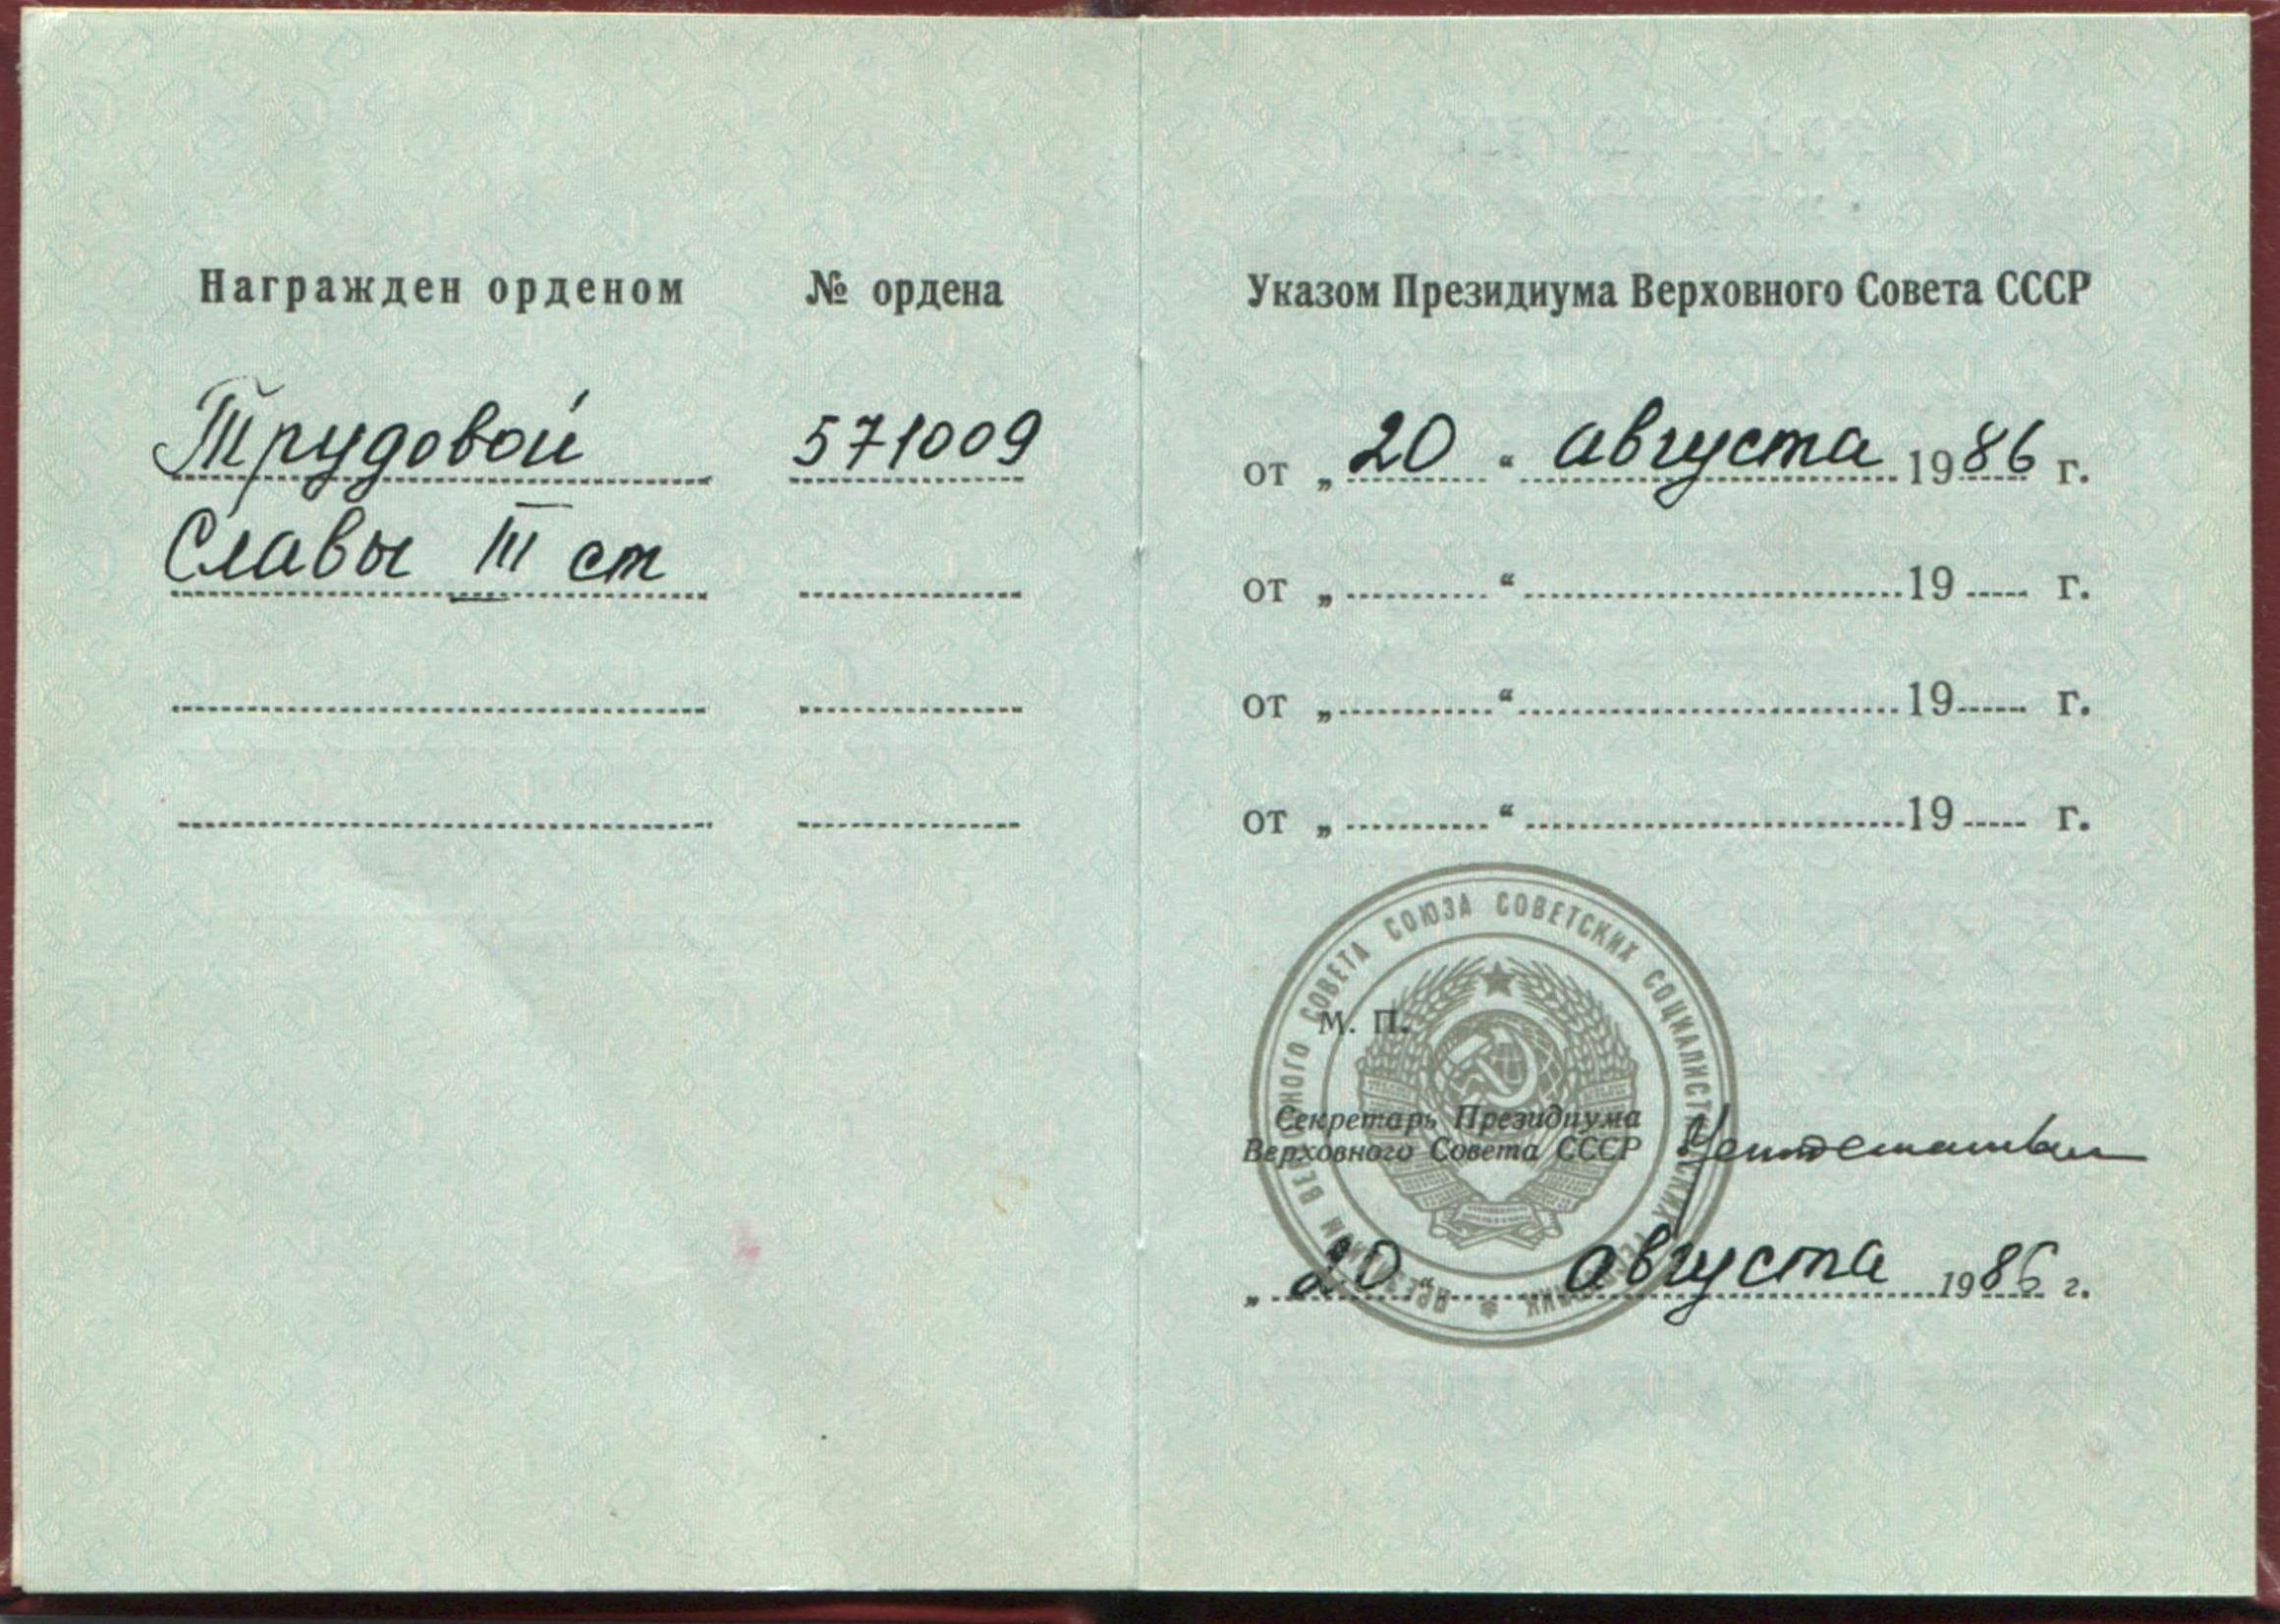 Награжден орденом № ордена
Трудовой 571009
Славы III ст
Указом Президиума Верховного Совета СССР
от „ 20 “ августа 1986 г.
от „ “ 19 г.
от „ “ 19 г.
от „ “ 19 г.
СОВЕТА СОЮЗА СОВЕТСКИХ СОЦИАЛИСТИЧЕСКИХ
М. П.
Секретарь Президиума
Верховного Совета СССР
„ 20 “ августа 1986 г.